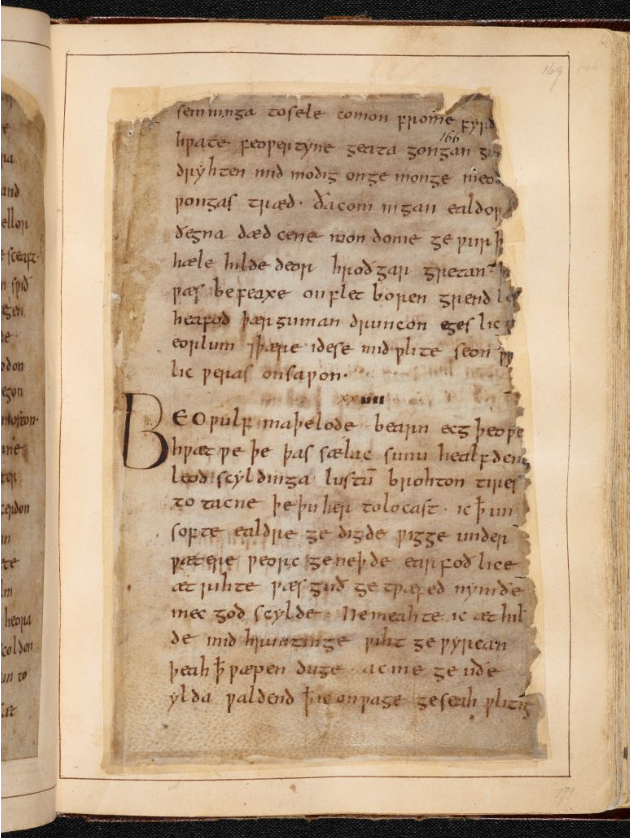 169
semninga tosele comon frome fyrd
166
hƿate feoƿertyne geata gongan gu
dryhten mid modig onge monge meo
ƿongas træd · ðacom ingan ealdor
ðegna dæd cene mon dome ge ƿurþ
hæle hilde deor hroðgar gretan
ƿæs be feaxe onflet boren grendles
heafod þærguman druncon egeslic
eorlum ⁊þære idese mid ƿlite seon
lic ƿeras onsaƿon ·
xxiiii
Beoƿulf maþelode bearn ecg þeoƿe
hƿæt ƿe þe þas sælac sunu healfdene
leod scyldinga lustū brohton tires
to tacne þe þu her tolocast · ic ꝥ un
softe ealdre ge digde ƿigge under
ƿætere ƿeorc geneþde earfoð lice
æt rihte ƿæs guð ge tƿæfed nymðe
mec god scylde · Nemeahte ic æt hil
de mid hruntinge ƿiht ge ƿyrcan
þeah ꝥ ƿæpen duge · acme ge uðe
ylda ƿaldend ꝥ ic onƿage geseah ƿlitig